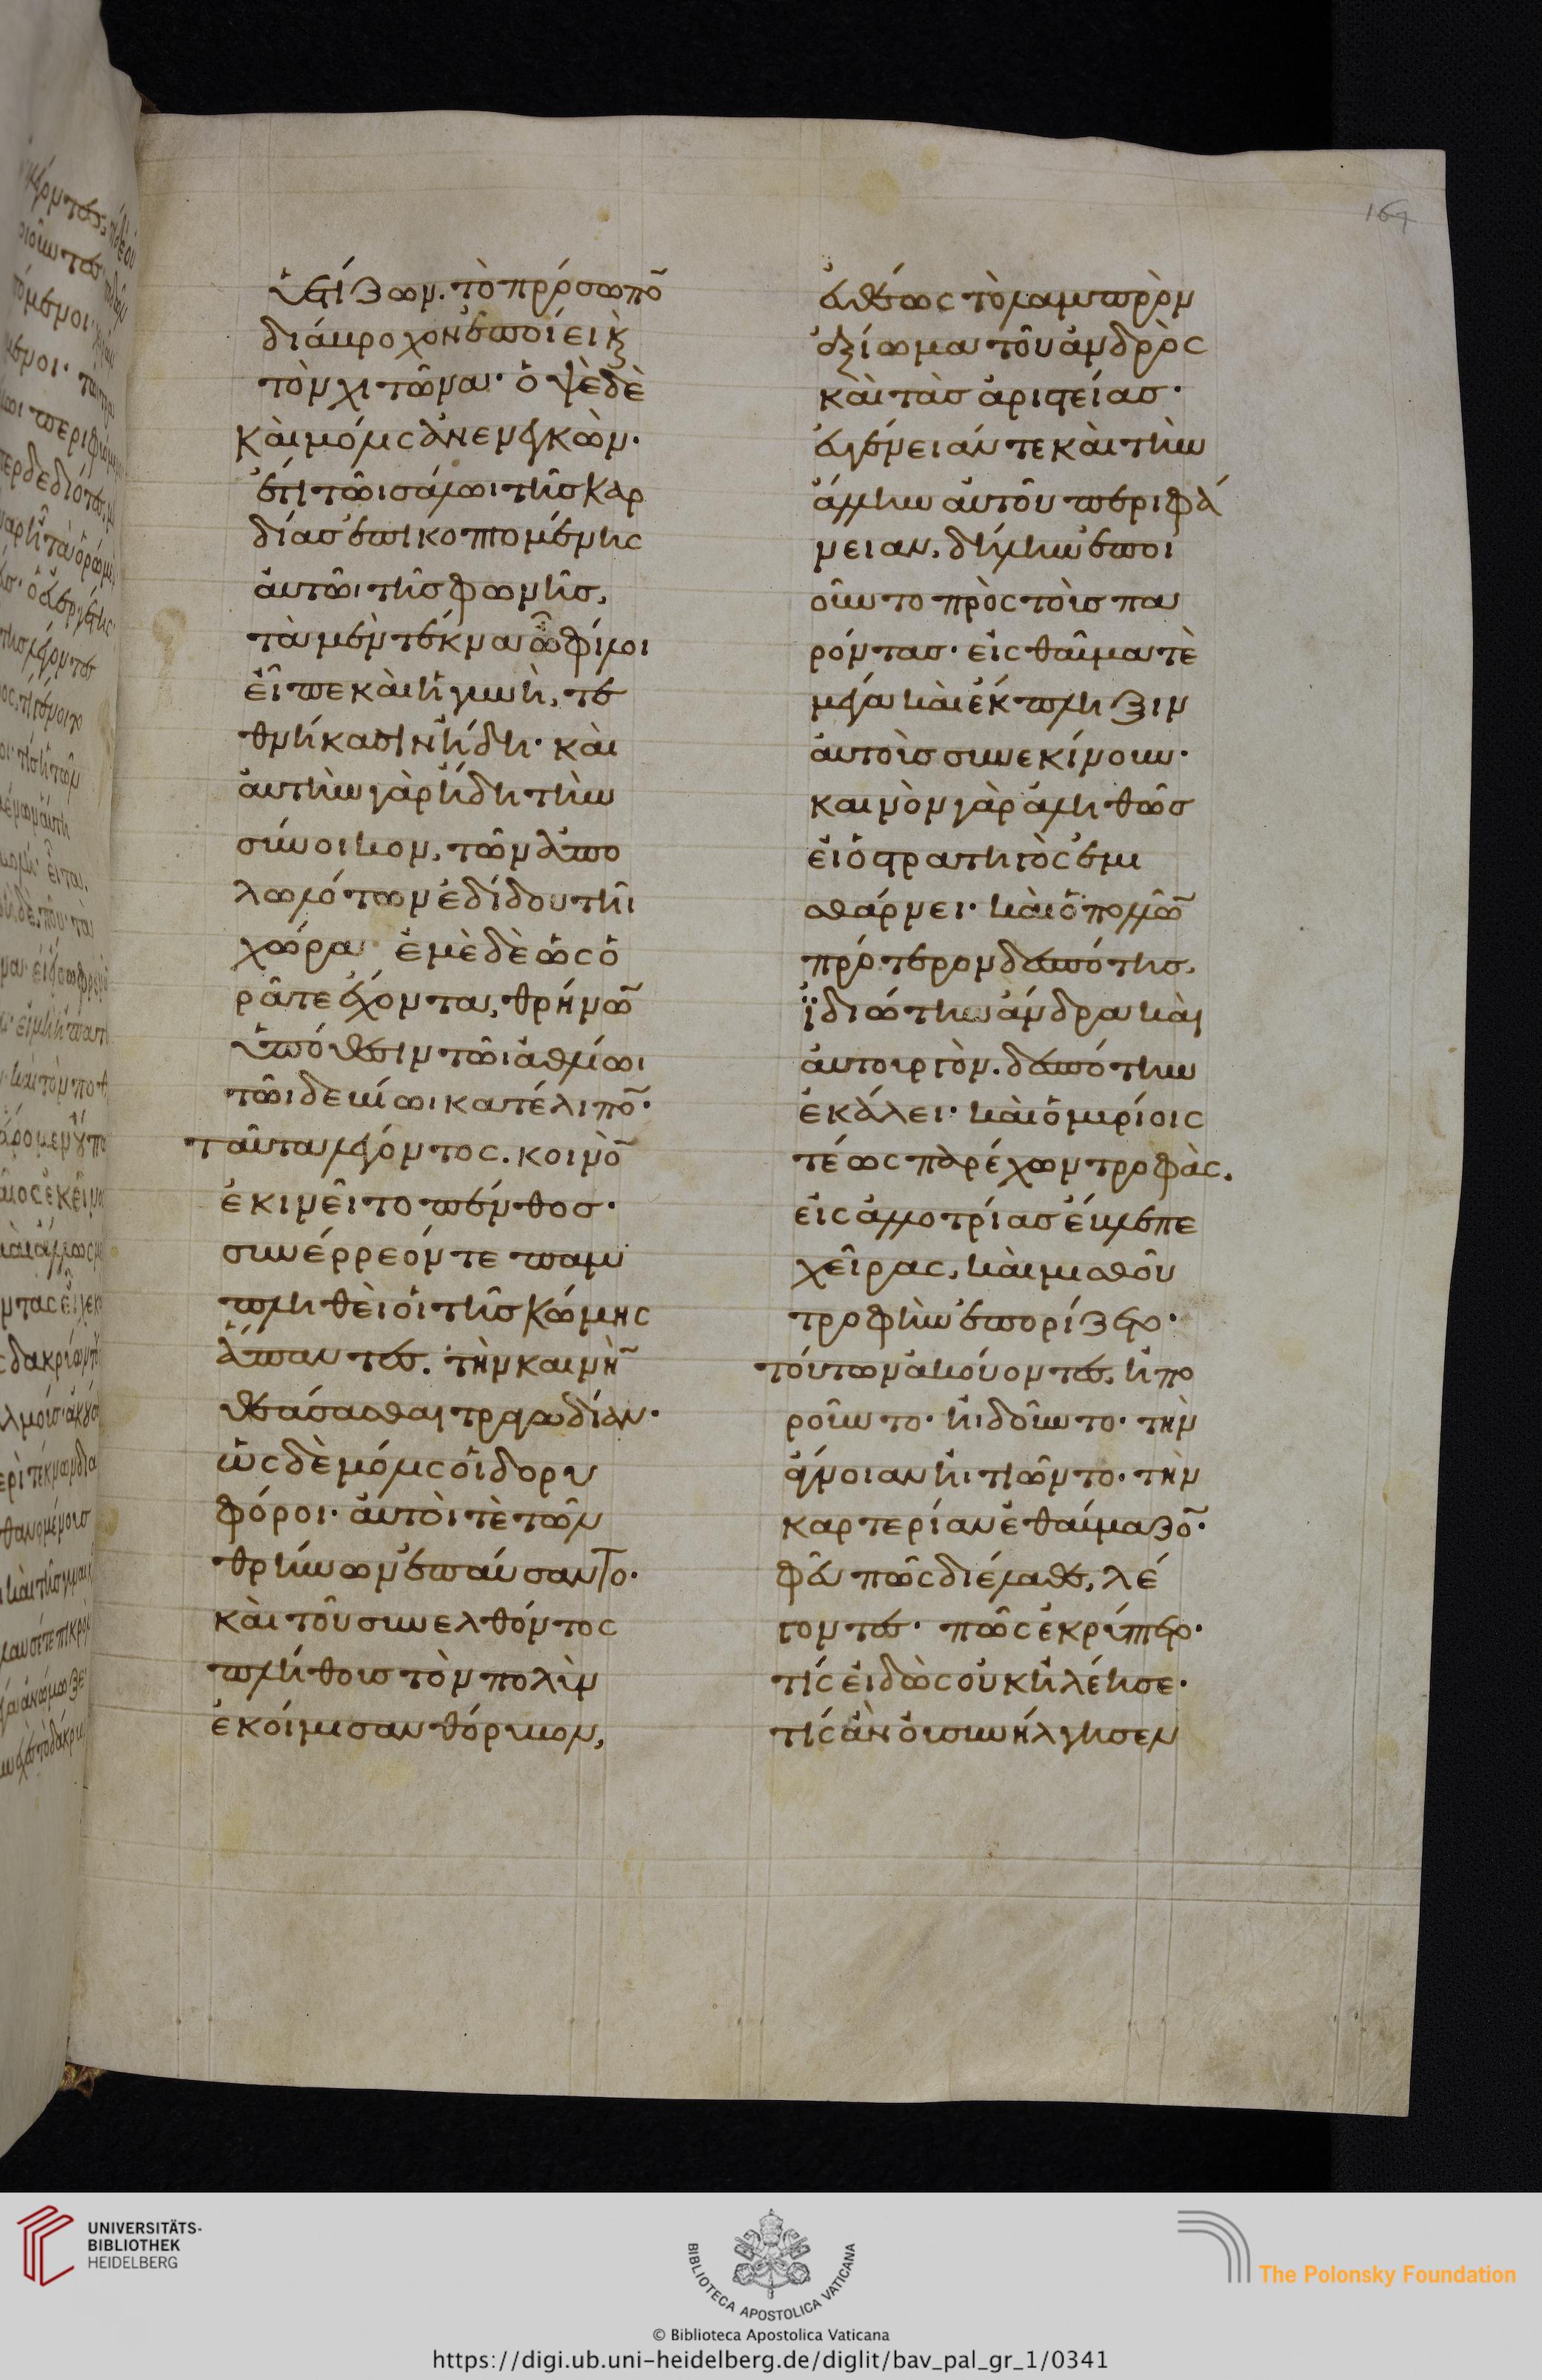 164
ὑετίζων. τὸ πρόσωπο̄
διάβροχον ἐποίει κ̀
τὸν χιτῶνα· ὀψὲ δὲ
καὶ μόλις ἀνενεγκὼν·
ἔτι τῶι σάλωι τῆς καρ
δίας ἐπικοπτομένης
αὐτῶι τῆς φωνῆς,
τὰ μὲν τέκνα ὦ φίλοι
εἶπε καὶ ἡ γυνὴ, τε
θνήκασιν ἤδη· καὶ
αὐτὴν γὰρ ἤδη τὴν
σύνοικον, τῶν ἀπο
λωλότων ἐδίδου τῆι
χώρα ἐμὲ δὲ ὡς ὁ
ρᾶτε ἔχοντα, θρήνω̄
ὑπόθεσιν τῶι ἀθλίωι
τῶι δε βίωι κατέλιπο̄·
ταῦτα λέγοντος. κοινὸ̄
ἐκινεῖτο πένθος·
συνέρρεόν τε παμ
πληθεὶ οἱ τῆς κώμης
ἅπαντες. τὴν καινὴ̄
θεάσασθαι τραγωδίαν·
ὡς δὲ μόλις οἱ δορυ
φόροι· αὐτοὶ τὲ τῶν
θρήνων ἐπαύσαντο·
καὶ τοῦ συνελθόντος
πλήθους τὸν πολὺν
ἐκοίμισαν θόρυβον,
εὐθέως τὸ λαμπρὸν
ἀξίωμα τοῦ ἀνδρὸς
καὶ τὰς ἀριστείας·
εὐγένειάν τε καὶ τὴν
ἄλλην αὐτοῦ περιφά
νειαν, δήλην ἐποι
οῦντο πρὸς τοὺς πα
ρόντας· εἰς θαῦμα τὲ
μέγα καὶ ἔκπληξιν
αὐτοὺς συνεκίνουν·
καινὸν γὰρ ἀληθῶς
εἰ ὁ στρατηγὸς ἐμι
σθάρνει· καὶ ὁ πολλῶ̄
πρότερον δεσπότης,
ἰδιώτην ἄνδρα καὶ
αὐτουργὸν. δεσπότην
ἐκάλει· καὶ ὁ μυρίοις
τέως παρέχων τροφὰς,
εἰς ἀλλοτρίας ἔβλεπε
χεῖρας, καὶ μισθοῦ
τροφὴν ἐπορίζετο·
τούτων ἀκούοντες, ἠπο
ροῦντο· ἠιδοῦντο· τὴν
εὔνοιαν ἠιτιῶντο· τὴν
καρτερίαν ἐθαύμαζο̄·
φεῦ πῶς διέλαθε, λέ
γοντες· πῶς ἐκρύπτετο·
τίς εἰδὼς οὐκ ἠλέησε·
τίς ἂν οὐ συνήλγησεν
UNIVERSITÄTS-
BIBLIOTHEK
HEIDELBERG
BIBLIOTECA APOSTOLICA VATICANA
The Polonsky Foundation
© Biblioteca Apostolica Vaticana
https://digi.ub.uni-heidelberg.de/diglit/bav_pal_gr_1/0341